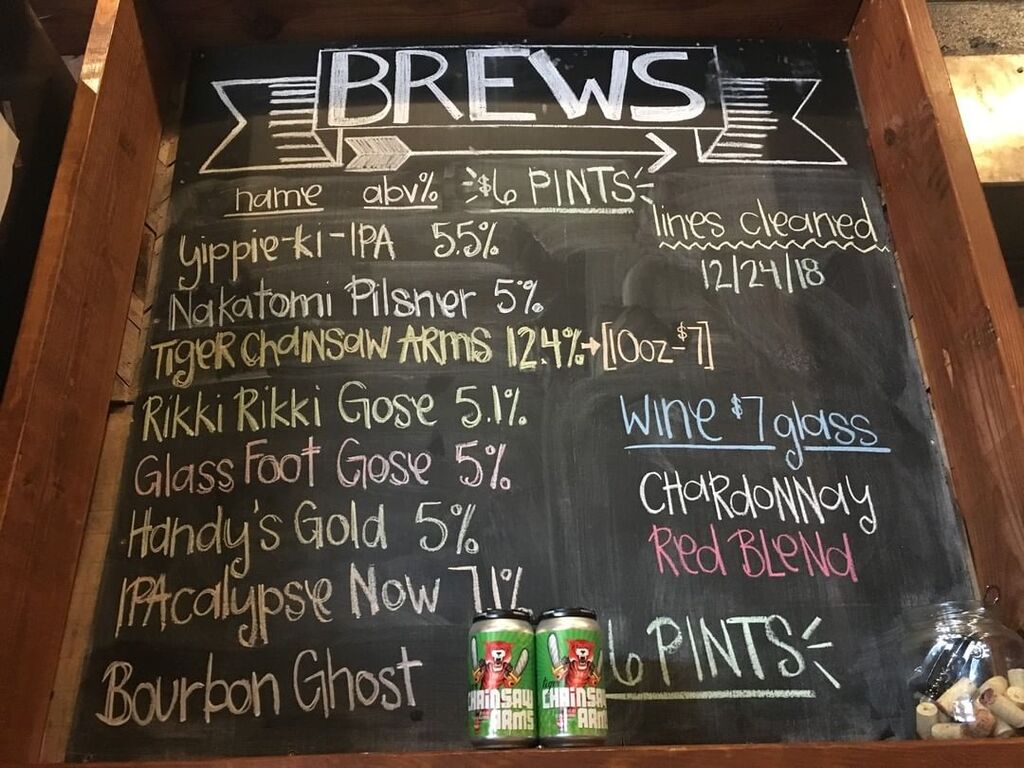 BREWS
name abv% $6 PINTS
lines cleaned
12/24/18
Yippie-ki-IPA 5.5%
Nakatomi Pilsner 5%
Tiger Chainsaw Arms 12.4% → [10oz-$7]
Rikki Rikki Gose 5.1%
Glass Foot Gose 5%
Handy's Gold 5%
IPAcalypse Now 7.1%
Bourbon Ghost
Wine $7 glass
Chardonnay
Red Blend
6 PINTS
CHAINSAW
ARMS
tiger
CHAINSAW
ARMS